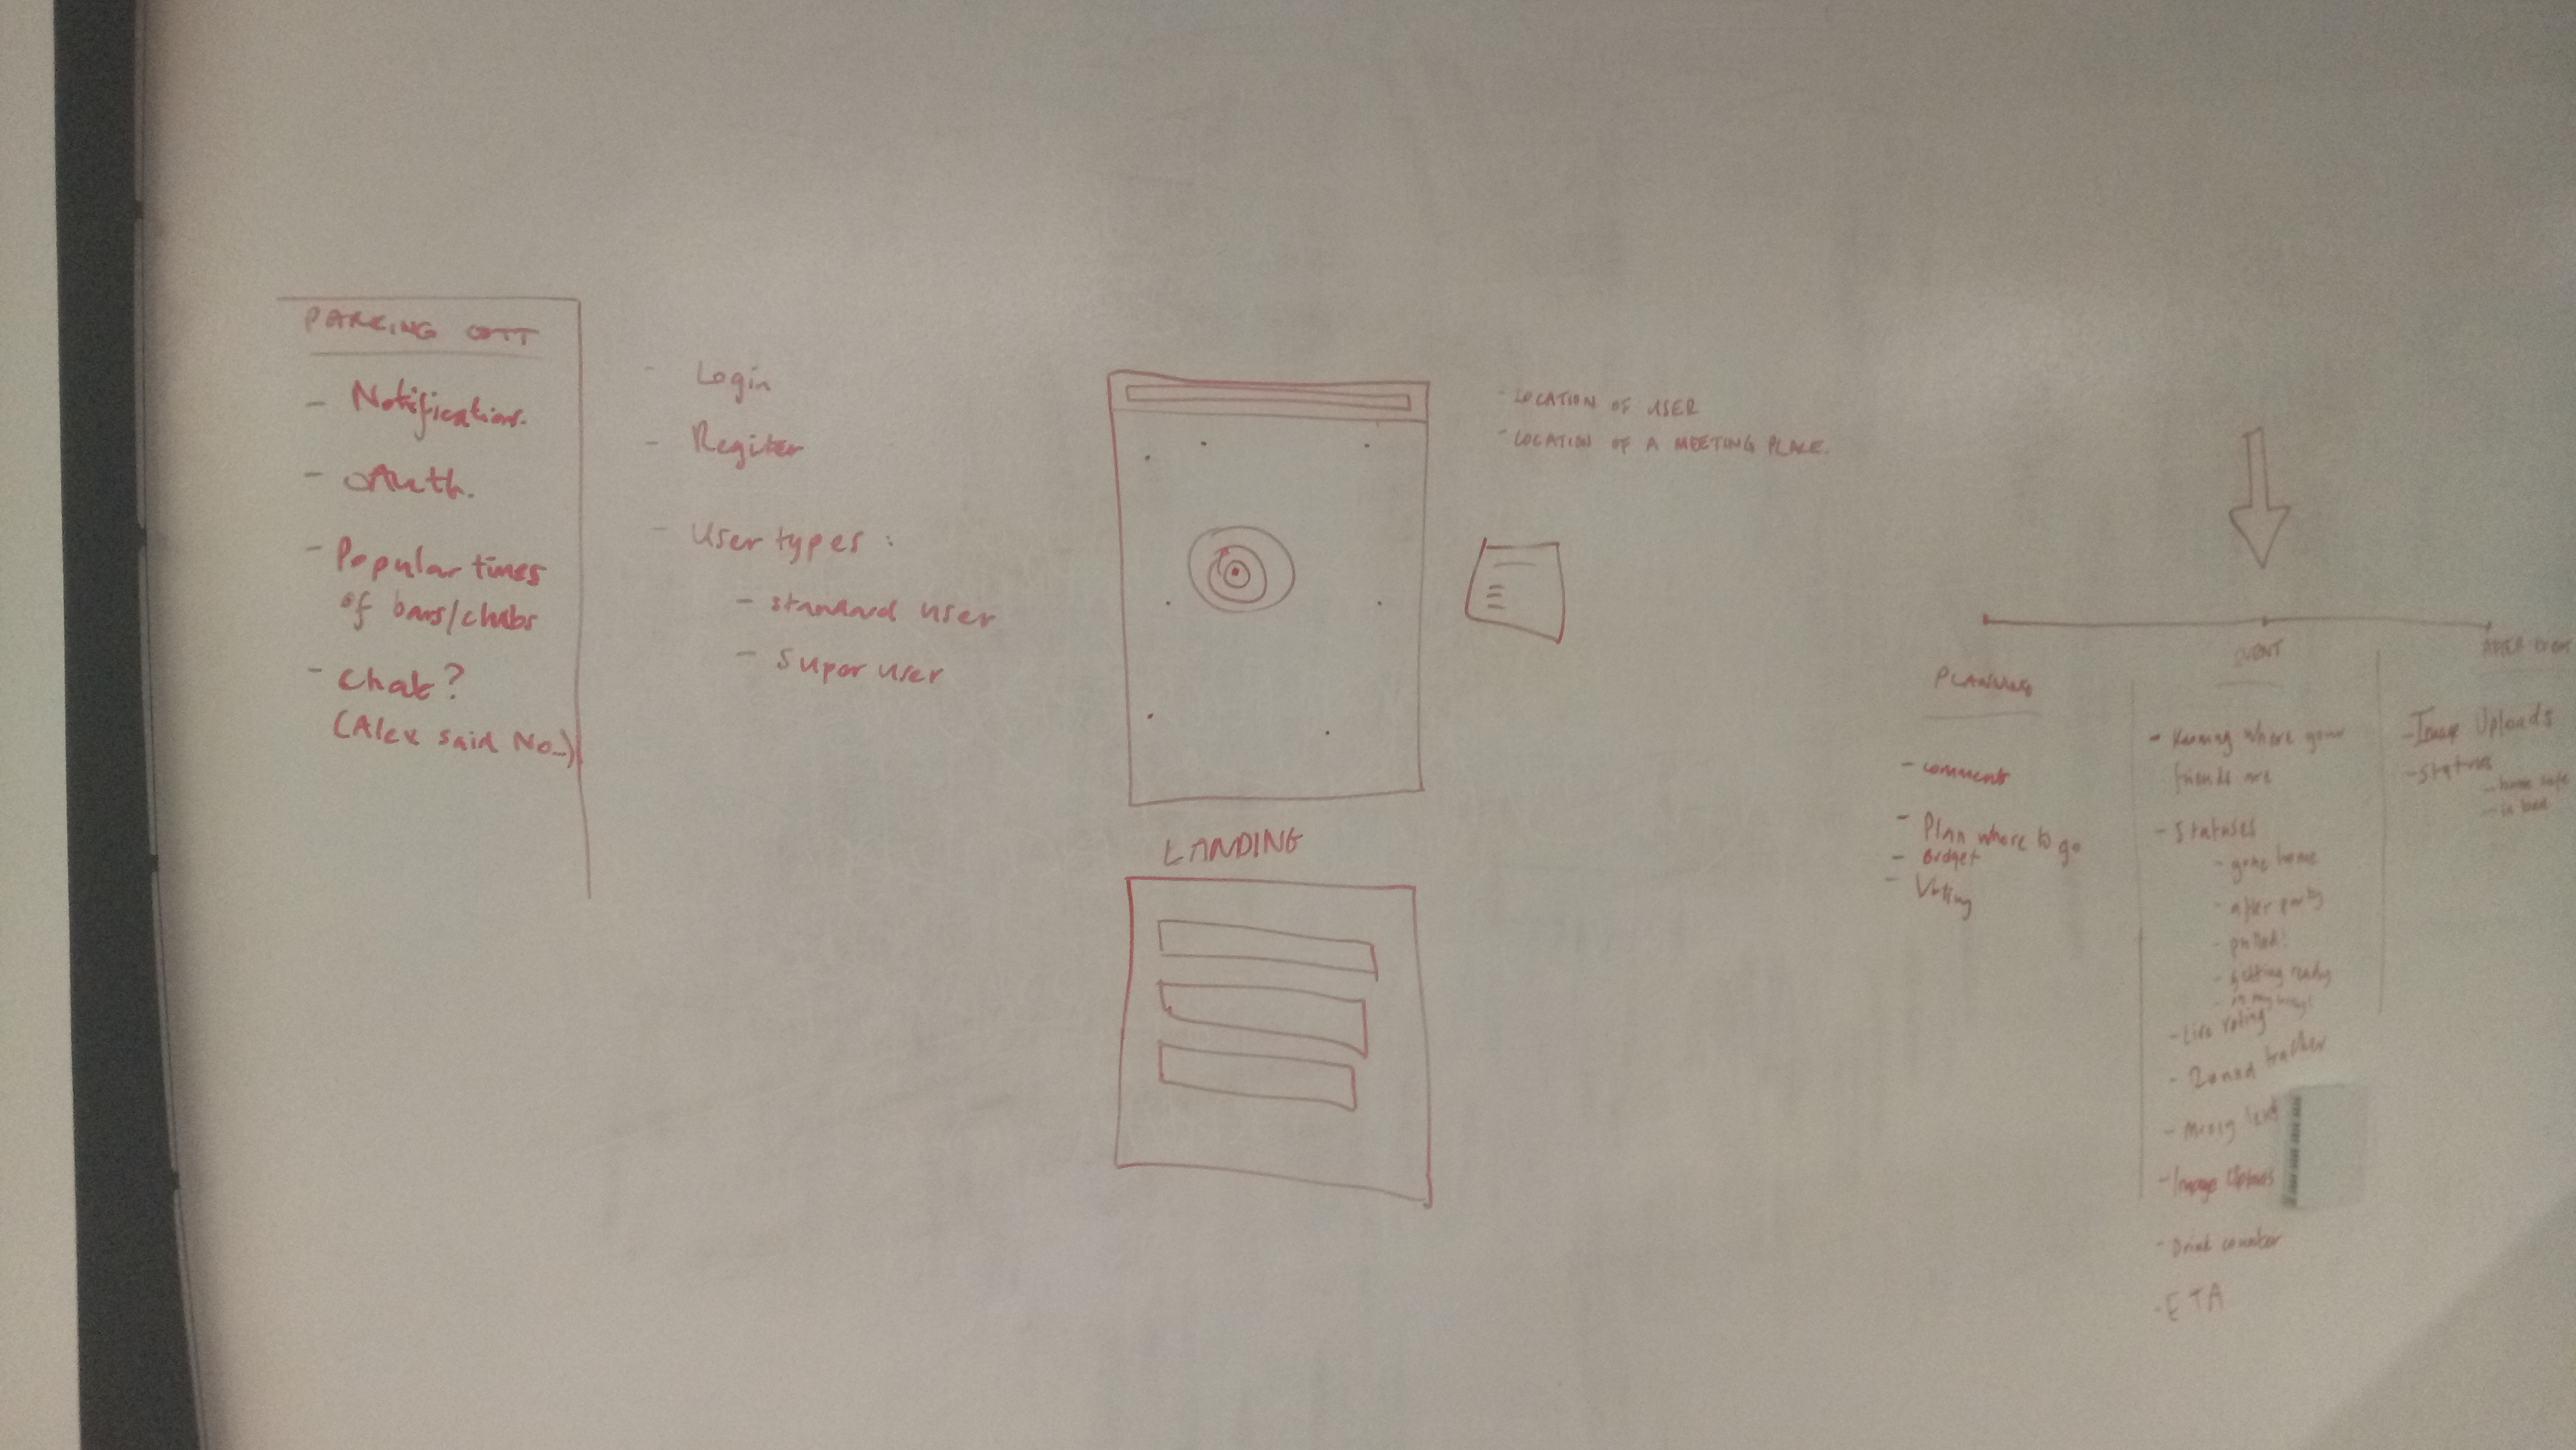 PARKING
- Notifications.
- OAuth.
- Popular times
of bars/clubs
- Chat?
(Alex said No..)
- Login
- Regiter
- User types :
- standard user
- Super user
- LOCATION OF USER
- LOCATION OF A MEETING PLACE.
LANDING
PLANNING
- comments
- Plan where to go
- Budget
- Voting
EVENT
- Knowing where your
friends are
- Statuses
- gone home
- after party
- pulled!
- getting ready
- in my way!
- Live voting
- Round tracker
- Image Uploads
- Drink counter
- ETA
AFTER EVENT
- Image Uploads
- Status
- home safe
- in bed